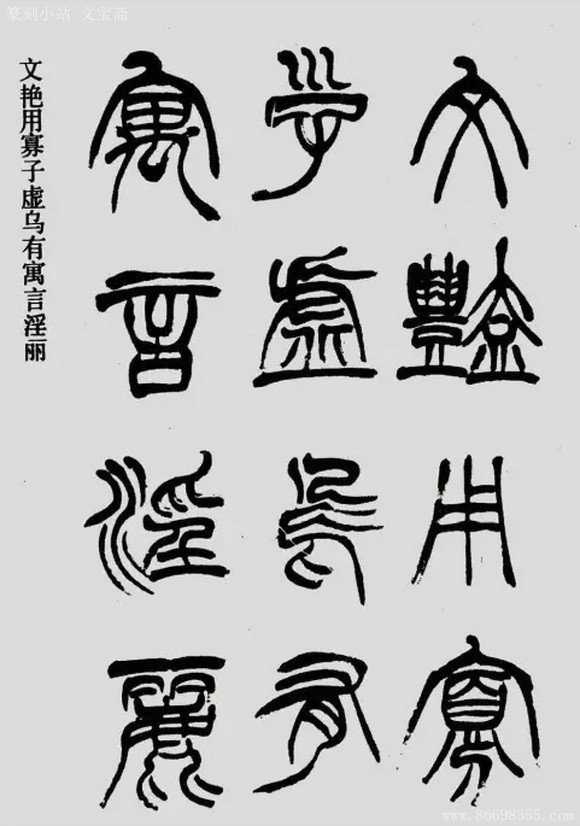 篆刻小站 文宝斋
文豔用寡
子虚乌有
寓言淫麗
文艳用寡子虚乌有寓言淫丽
www.86698355.com